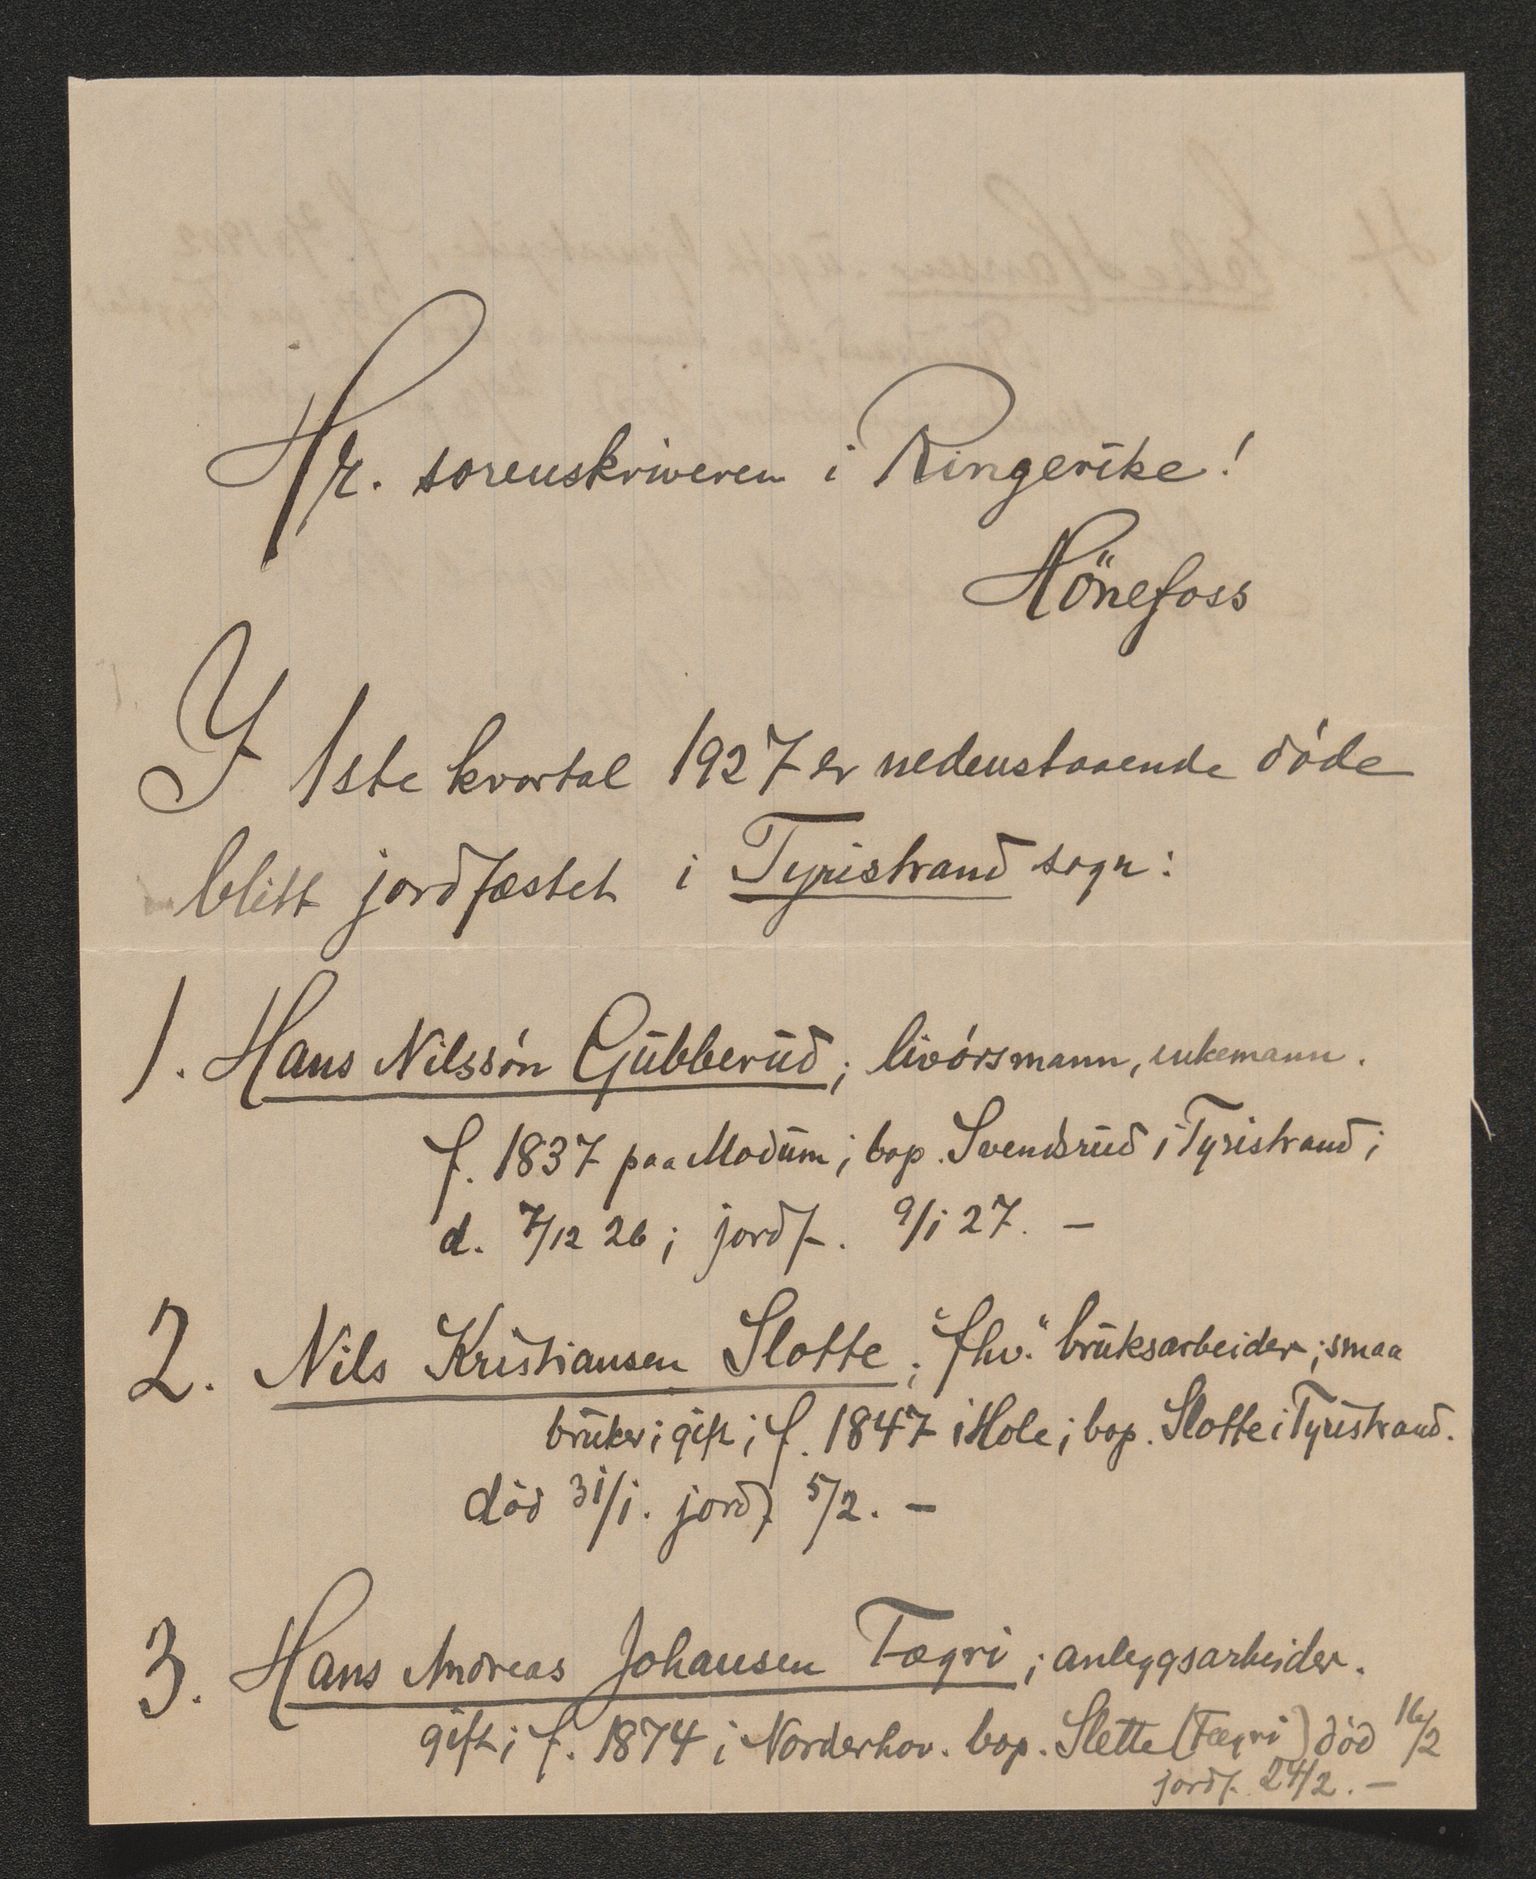 Hr. sorenskriveren i Ringerike!
Hönefoss
I 1ste kvartal 1927 er nedenstaaende döde
blitt jordfæstet i Tyristrand sogn:
1. Hans Nilssön Gubberud; livörsmann, enkemann.
f. 1837 paa Modum; bop. Svendsrud i Tyristrand;
d. 7/12 26; jordf. 9/1 27. —
2. Nils Kristiansen Slotte; "fhv." bruksarbeider; smaa
bruker; gift; f. 1847 i Hole; bop. Slotte i Tyristrand.
död 31/1. jordf 5/2. —
3. Hans Andreas Johansen Fægri; anleggsarbeider.
gift; f. 1874 i Norderhov. bop. Slette (Fægri) död 16/2
jordf. 24/2. —